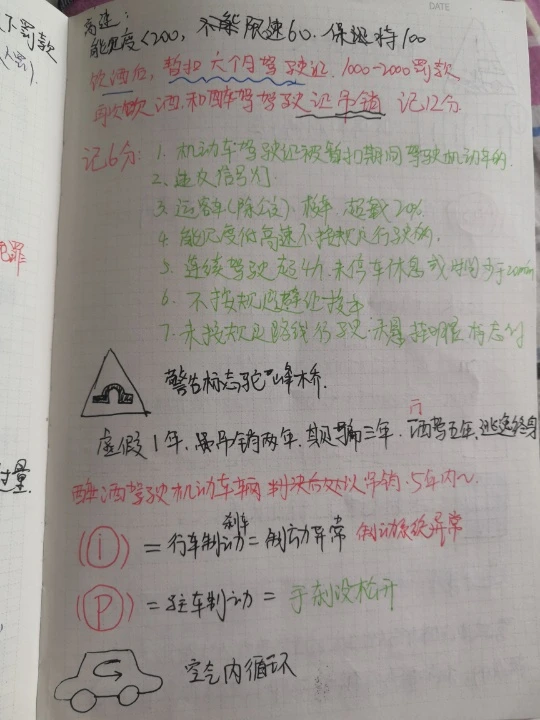 下罚款
DATE
高速：
能见度<200，不能限速60. 保证持100
饮酒后，暂扣六个月驾驶证. 1000-2000罚款
再次饮酒和醉驾驾驶证吊销 记12分
记6分：1. 机动车驾驶证被暂扣期间驾驶机动车的.
2. 违反信号灯
3. 运客车(除公交)、校车，超载20%
4. 能见度低高速不按规定行驶的.
5. 连续驾驶超4h，未停车休息或时间少于20min
6. 不按规定避让校车
7. 未按规定路线行驶. 未悬挂明显标志灯
罪
警告标志驼峰桥.
虚假1年. 吊销两年. 三年. 酒驾五年. 逃逸终身
过量.
醉酒驾驶机动车辆 判决后处以吊销. 5年内~
刹车
(!) = 行车制动 = 制动异常 制动系统异常
(P) = 驻车制动 = 手刹没松开
空气内循环